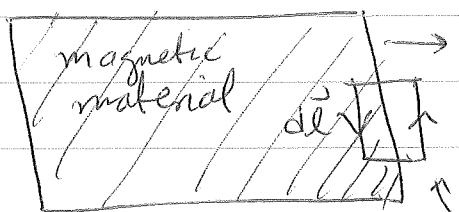 magnetic
material
dl⃗